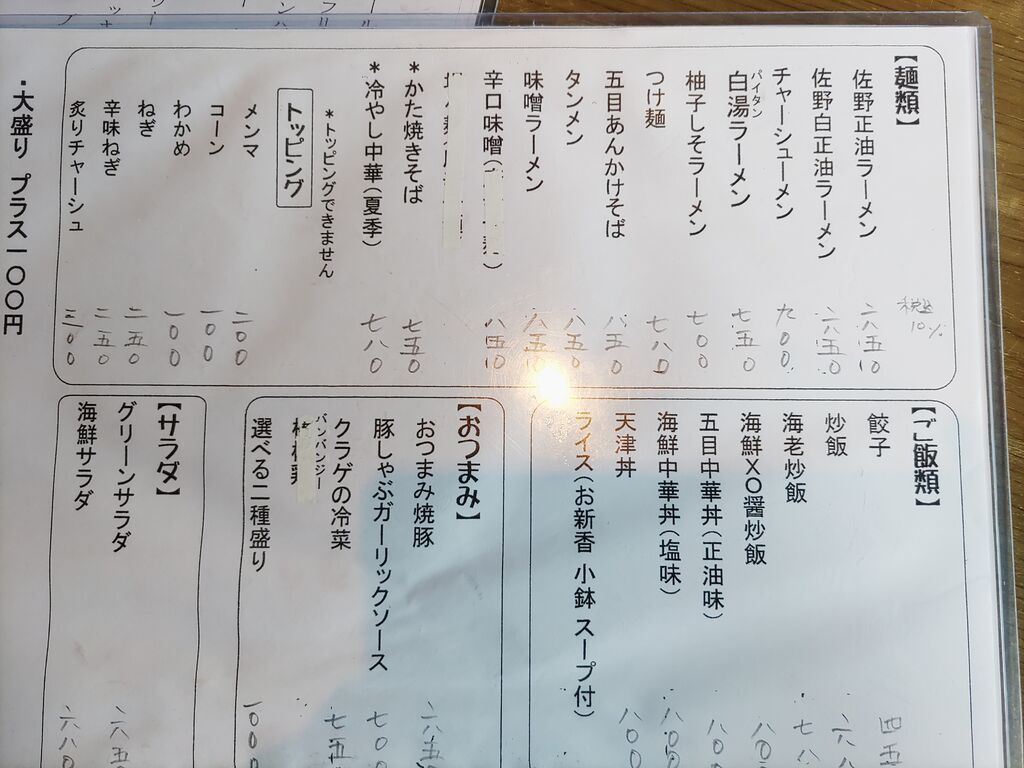 【麺類】 税込 10%
佐野正油ラーメン 六五〇
佐野白正油ラーメン 六五〇
チャーシューメン 九〇〇
白湯ラーメン 七五〇
パイタン
柚子しそラーメン 七〇〇
つけ麺 七八〇
五目あんかけそば 八五〇
タンメン 八五〇
味噌ラーメン
辛口味噌( ) 八五〇
*かた焼きそば 七五〇
*冷やし中華(夏季) 七八〇
*トッピングできません
トッピング
メンマ 二〇〇
コーン 一〇〇
わかめ 一〇〇
ねぎ 二五〇
辛味ねぎ 二五〇
炙りチャーシュ 三〇〇
・大盛り プラス一〇〇円
【ご飯類】
餃子 四五
炒飯
海老炒飯
海鮮XO醤炒飯
五目中華丼(正油味)
海鮮中華丼(塩味) 八〇〇
天津丼 八〇〇
ライス(お新香 小鉢 スープ付)
【おつまみ】
おつまみ焼豚 六五
豚しゃぶガーリックソース 七〇〇
クラゲの冷菜 七五
バンバンジー
選べる二種盛り 一〇〇〇
【サラダ】
グリーンサラダ 六五〇
海鮮サラダ 六八〇